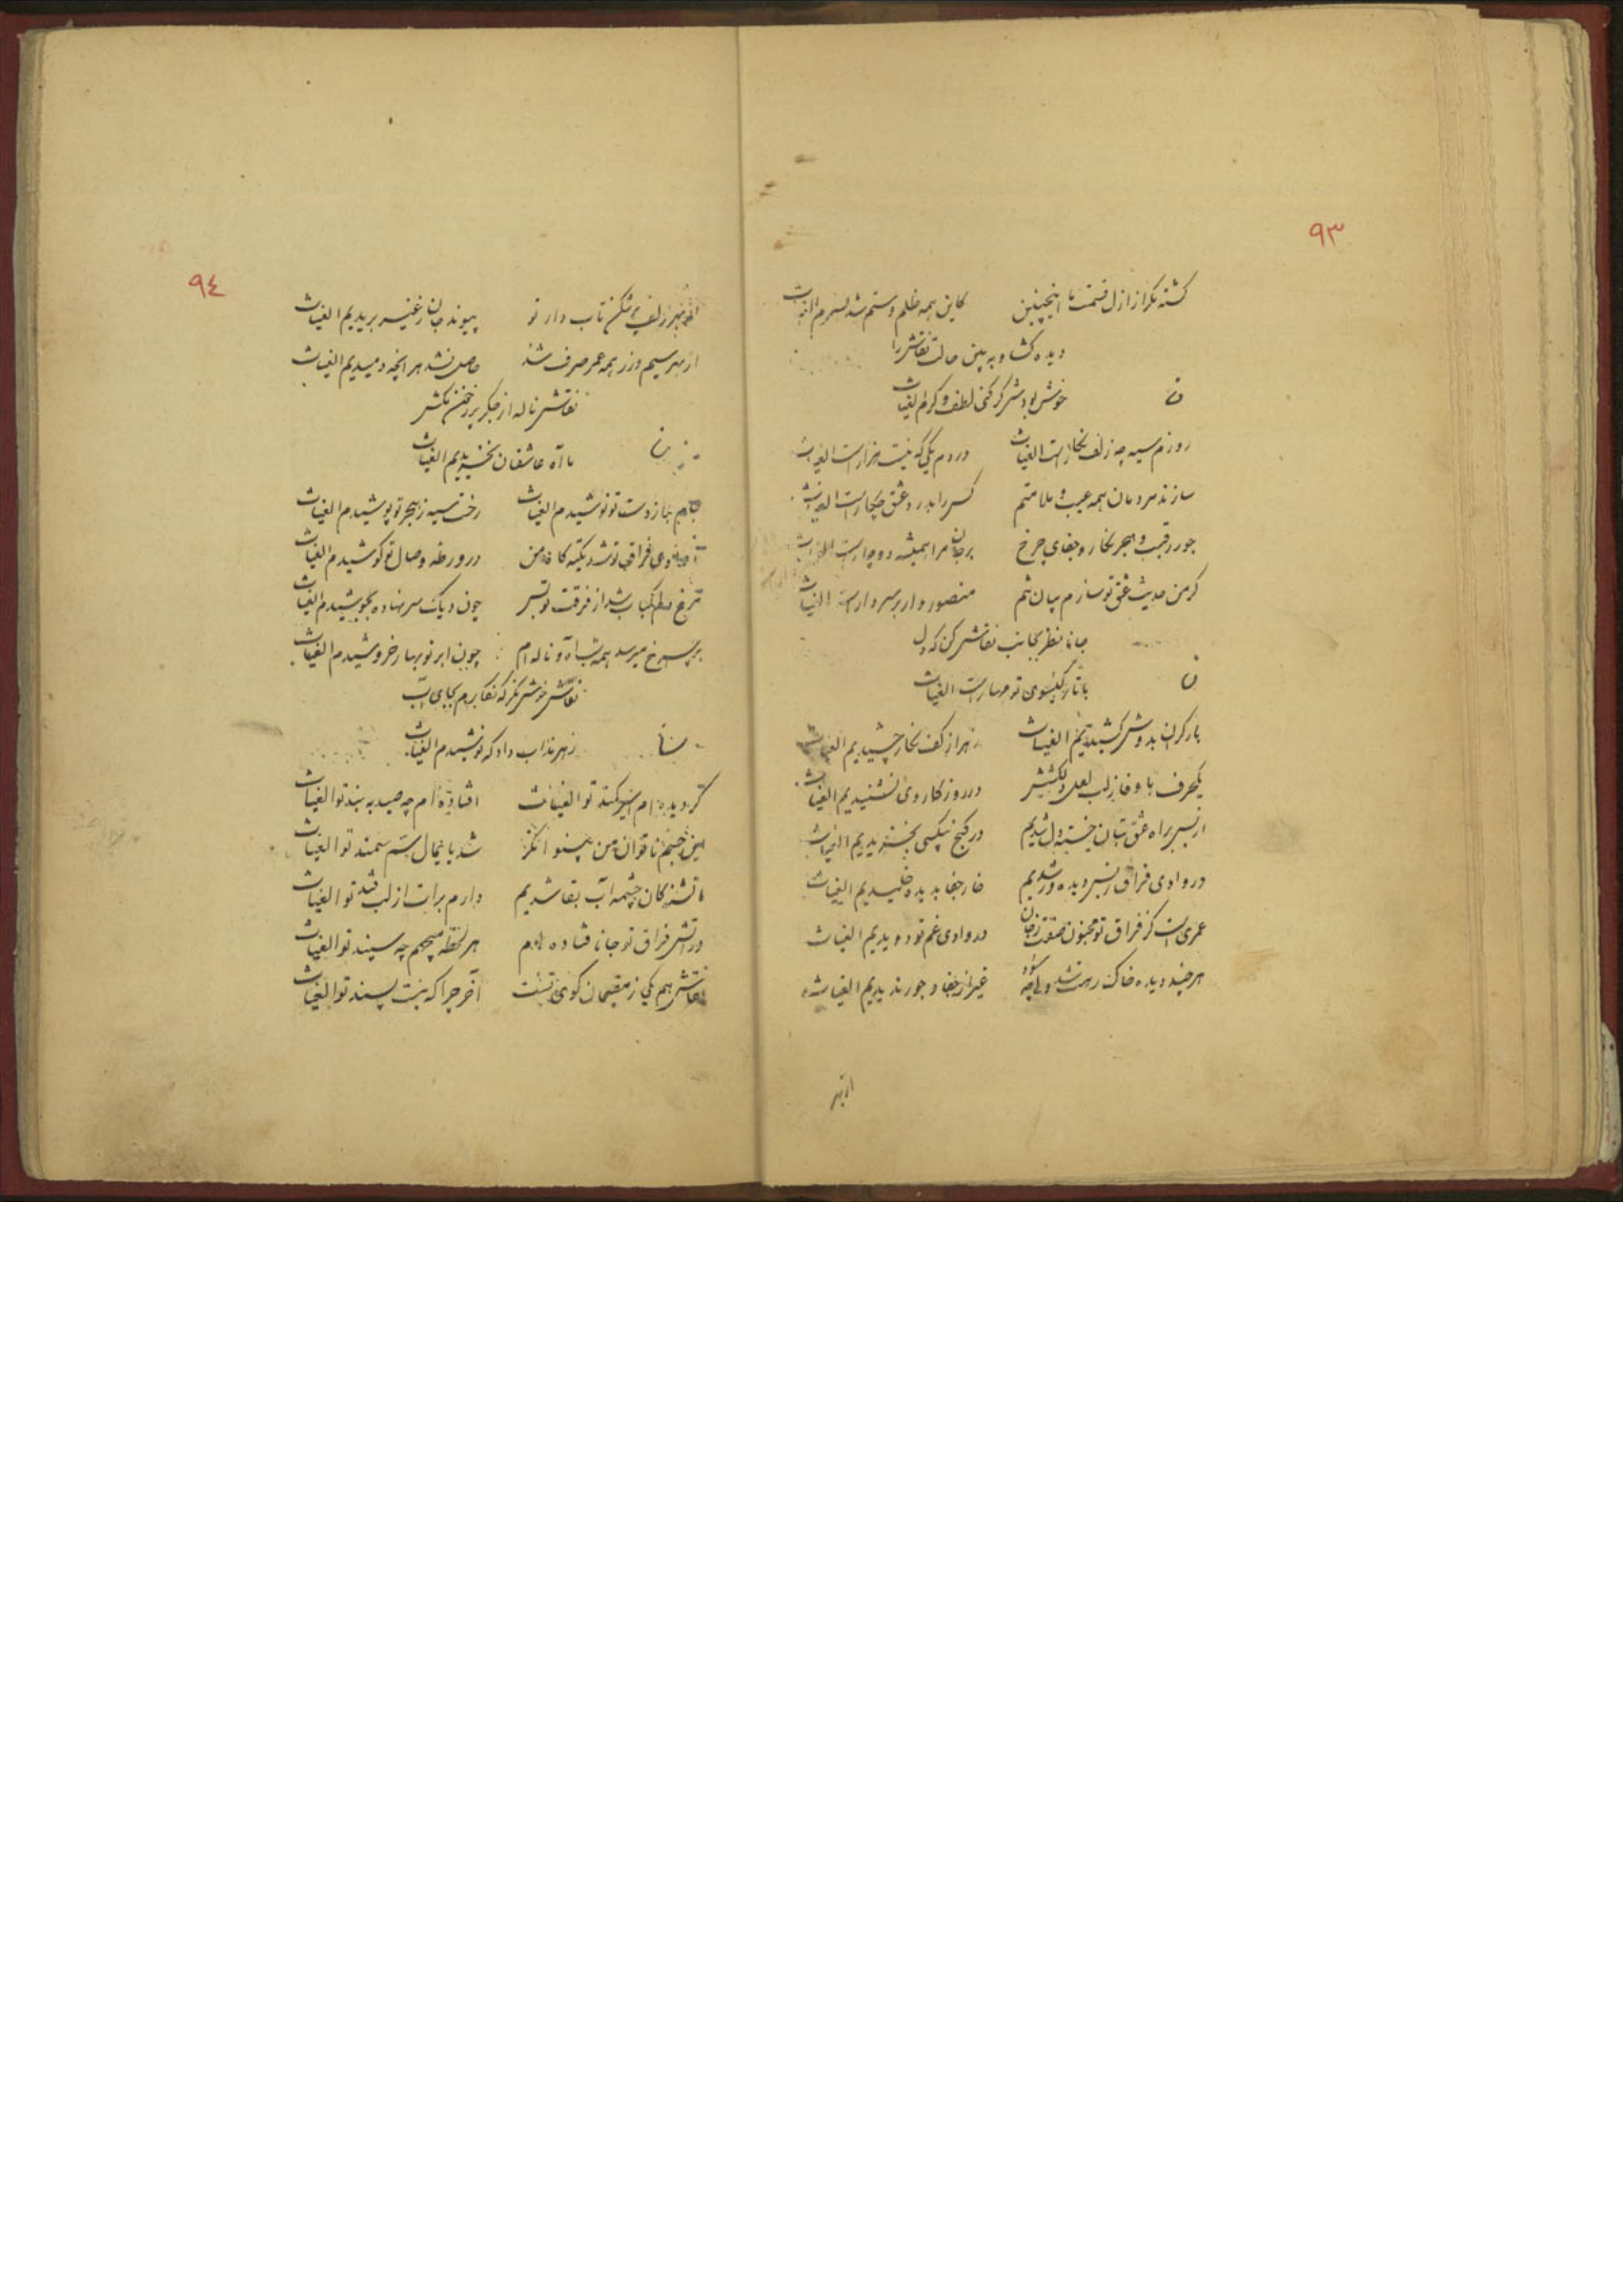 ٩٣
کشته مکر از ازل قسمت ما اینچنین کاین همه ظلم و ستم شد بسرم الغیاث
دیده کشا و به بین حالت نقاش را
خوش بود شر کر کنی لطف و کرم الغیاث
روزم سیه چه زلف نکار است الغیاث دردم یکی که نیست هزار است الغیاث
سازند مردمان همه عیب و ملامتم کس را بدرد عشق چکار است الغیاث
جور رقیب و هجر نکار و جفای چرخ بر جان مرا همیشه دوچار است الغیاث
کر من حدیث عشق تو سازم بیان شم منصور وار بر سر دار است الغیاث
جانا نظر بجانب نقاش کن که دل
با تار کیسوی تو مهار است الغیاث
بار کران بدوش کشیدیم الغیاث زهر از کف نکار چشیدیم الغیاث
یکحرف با وفا ز لب لعل دلکشش در روزکار وی نشنیدیم الغیاث
از بس براه عشق بتان خسته دل شدیم در کنج بیکسی بخزیدیم الغیاث
در وادی فراق ز بس دیده ور شدیم خار جفا بدیده خلیدیم الغیاث
عمری است کز فراق تو مجنون صفت ز جان در وادی غم تو دویدیم الغیاث
هر چند دیده خاک رهت شد غیر از جفا و جور ندیدیم الغیاث
از بهر
٩٤
از بهر زلف پر شکن تاب دار تو پیوند جان ز غیر بریدیم الغیاث
از بهر سیم و زر همه عمر صرف شد حاصل نشد هر آنچه دمیدیم الغیاث
نقاش ناله از جکر پر ز خون مکش
با آه عاشقان بخزیدیم الغیاث
جام جفا ز دست تو نوشیدم الغیاث رخت سیه ز هجر تو پوشیدم الغیاث
فراق تو شد تکیه کاه من در ورطه وصال تو کوشیدم الغیاث
مرغ دلم کباب شد از فرقت تو بس چون دیک سر نهاده بجوشیدم الغیاث
بر چرخ میرسد همه شب آه و ناله ام چون ابر نو بهار خروشیدم الغیاث
نقاش خوش نکر که نکارم بجای آب
زهر مذاب داد که نوشیدم الغیاث
کردیده ام اسیر کمند تو الغیاث افتاده ام چه صید به بند تو الغیاث
این جسم ناتوان من بینوا نکر شد پایمال سم سمند تو الغیاث
ما تشنه کان چشمه آب بقا شدیم دارم برات از لب قند تو الغیاث
در آتش فراق تو جانا فتاده ام هر لحظه میجهم چه سپند تو الغیاث
نقاش هم یکی ز مقیمان کوی تست آخر چرا که نیست پسند تو الغیاث